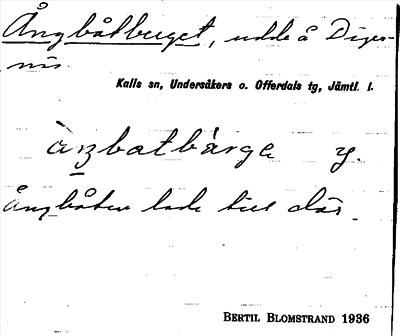 Ångbåtberget, udde å Digernäs.
Kalls sn, Undersåkers o. Offerdals tg, Jämtl. l.
àŋbatbæ̀rge y.
Ångbåten lade till där.
BERTIL BLOMSTRAND 1936